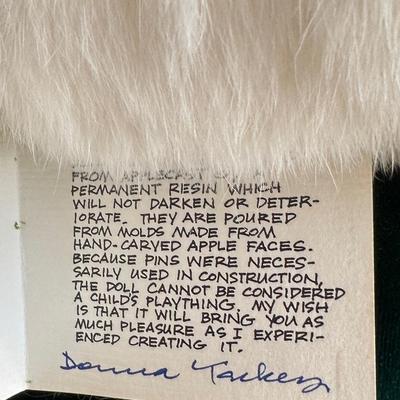 FROM APPLECAST
PERMANENT RIESIN WHICH
WILL NOT DARKEN OR DETER-
IORATE. THEY ARE POURED
FROM MOLDS MADE FROM
HAND-CARVED APPLE FACES.
BECAUSE PINS WERE NECES-
SARILY USED IN CONSTRUCTION,
THE DOLL CANNOT BE CONSIDERED
A CHILD'S PLAYTHING. MY WISH
IS THAT IT WILL BRING YOU AS
MUCH PLEASURE AS I EXPERI-
ENCED CREATING IT.
Donna